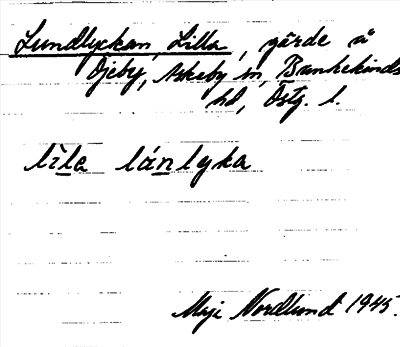 Lundlyckan, Lilla, gärde å
Öjeby, Askeby sn, Bankekinds
hd, Östg. l.
lìla lánlyka
Maje Nordlund 1945.